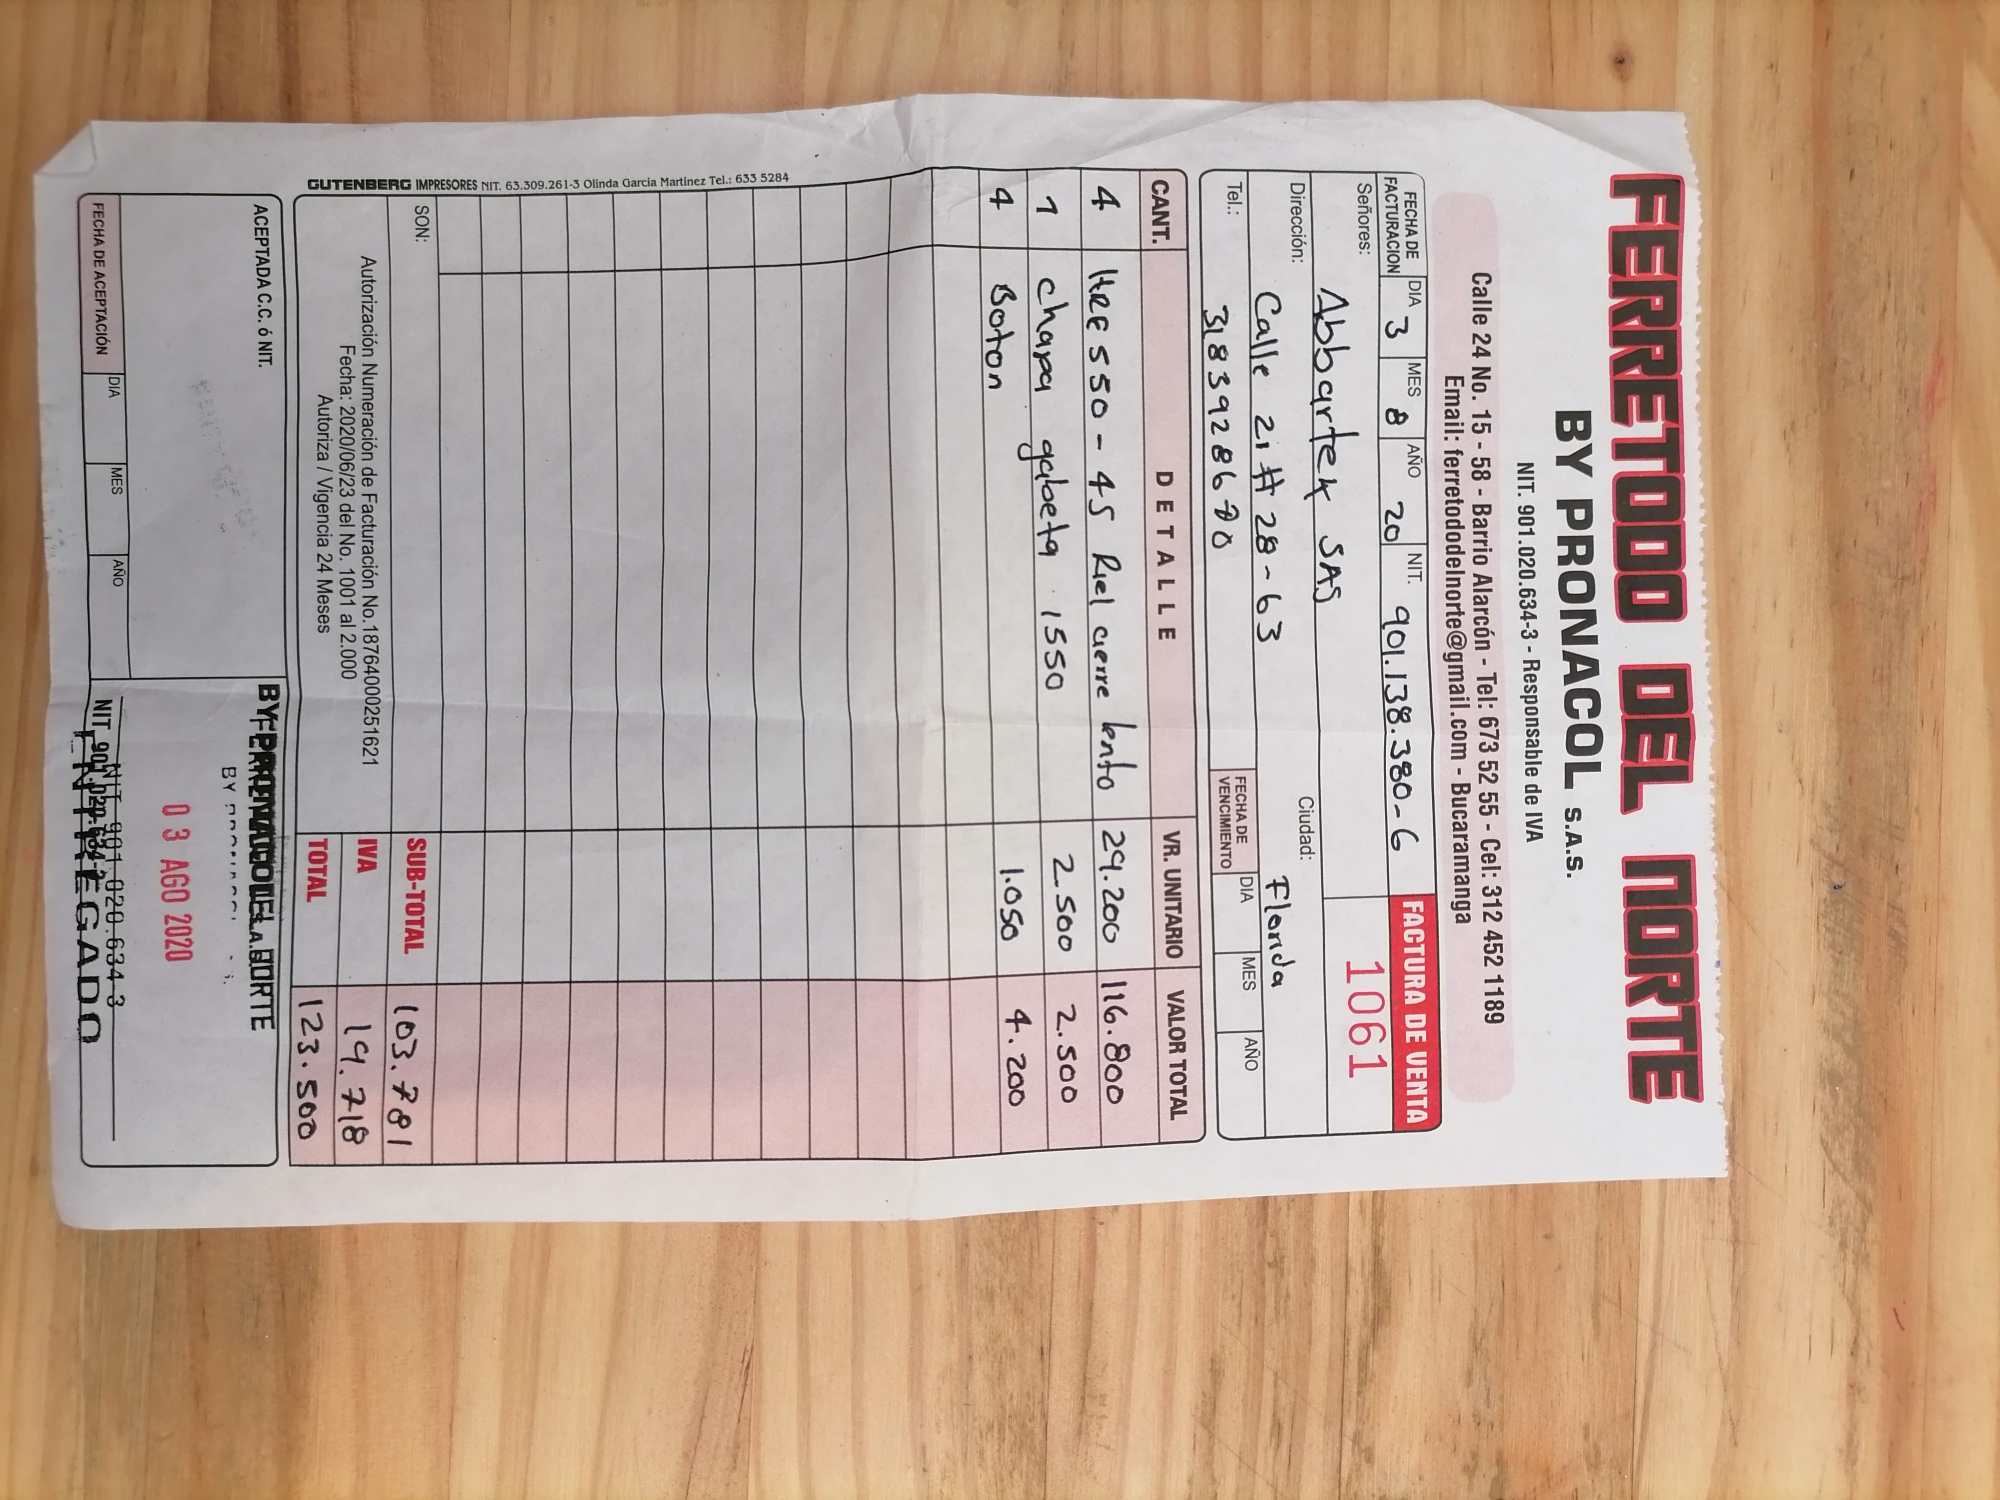 FERRETODO DEL NORTE
BY PRONACOL S.A.S.
NIT. 901.020.634-3 - Responsable de IVA
Calle 24 No. 15 - 58 - Barrio Alarcón - Tel: 673 52 55 - Cel: 312 452 1189
Email: ferretododelnorte@gmail.com - Bucaramanga
FECHA DE FACTURACION DIA 3 MES 8 AÑO 20 NIT. 901.138.380-6 FACTURA DE VENTA
1061
Señores: Abbartek SAS
Dirección: Calle 21 # 28-63 Ciudad: Florida
Tel.: 3183928670 FECHA DE VENCIMIENTO DIA MES AÑO
CANT. DETALLE VR. UNITARIO VALOR TOTAL
4 HRE550-45 Riel cierre lento 29.200 116.800
1 chapa gabeta 1550 2.500 2.500
4 Boton 1.050 4.200
SON: SUB-TOTAL 103.781
Autorización Numeración de Facturación No.18764000251621 IVA 19.718
Fecha: 2020/06/23 del No. 1001 al 2.000
Autoriza / Vigencia 24 Meses TOTAL 123.500
GUTENBERG IMPRESORES NIT. 63.309.261-3 Olinda García Martínez Tel.: 633 5284
ACEPTADA C.C. ó NIT. BY PRONACOL S.A.S.
DEL NORTE
BY
03 AGO 2020
NIT 901.020.634-3
NIT. 901.020.634-3
ENTREGADO
FECHA DE ACEPTACIÓN DIA MES AÑO